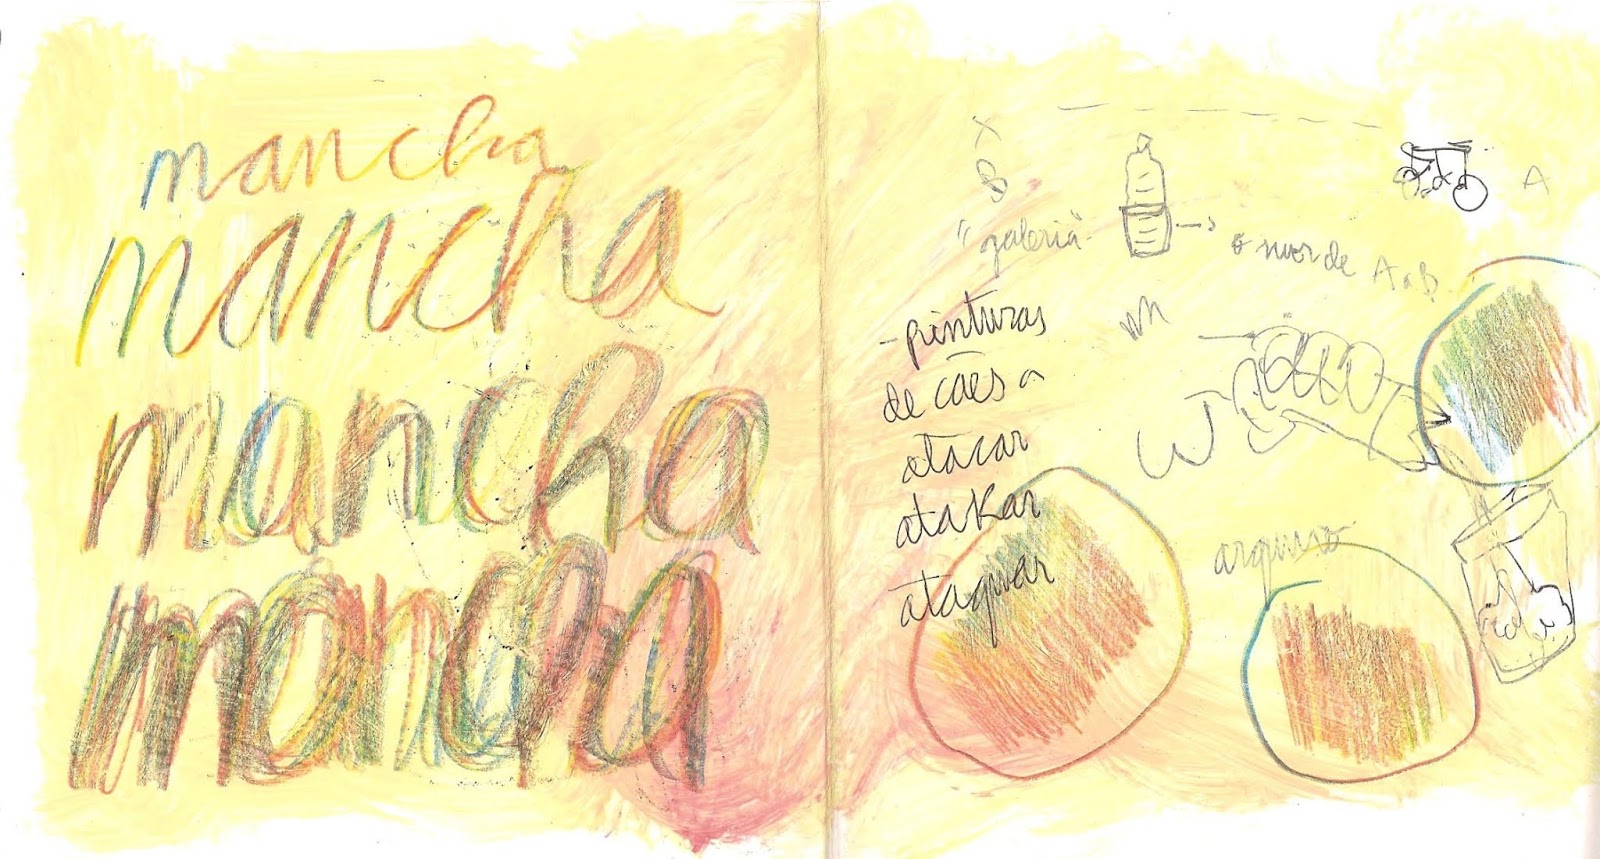 mancha
mancha
mancha
mancha
X
B
"galeria"
A
A a B
- pinturas
de cães a
atacar
atakar
ataquar